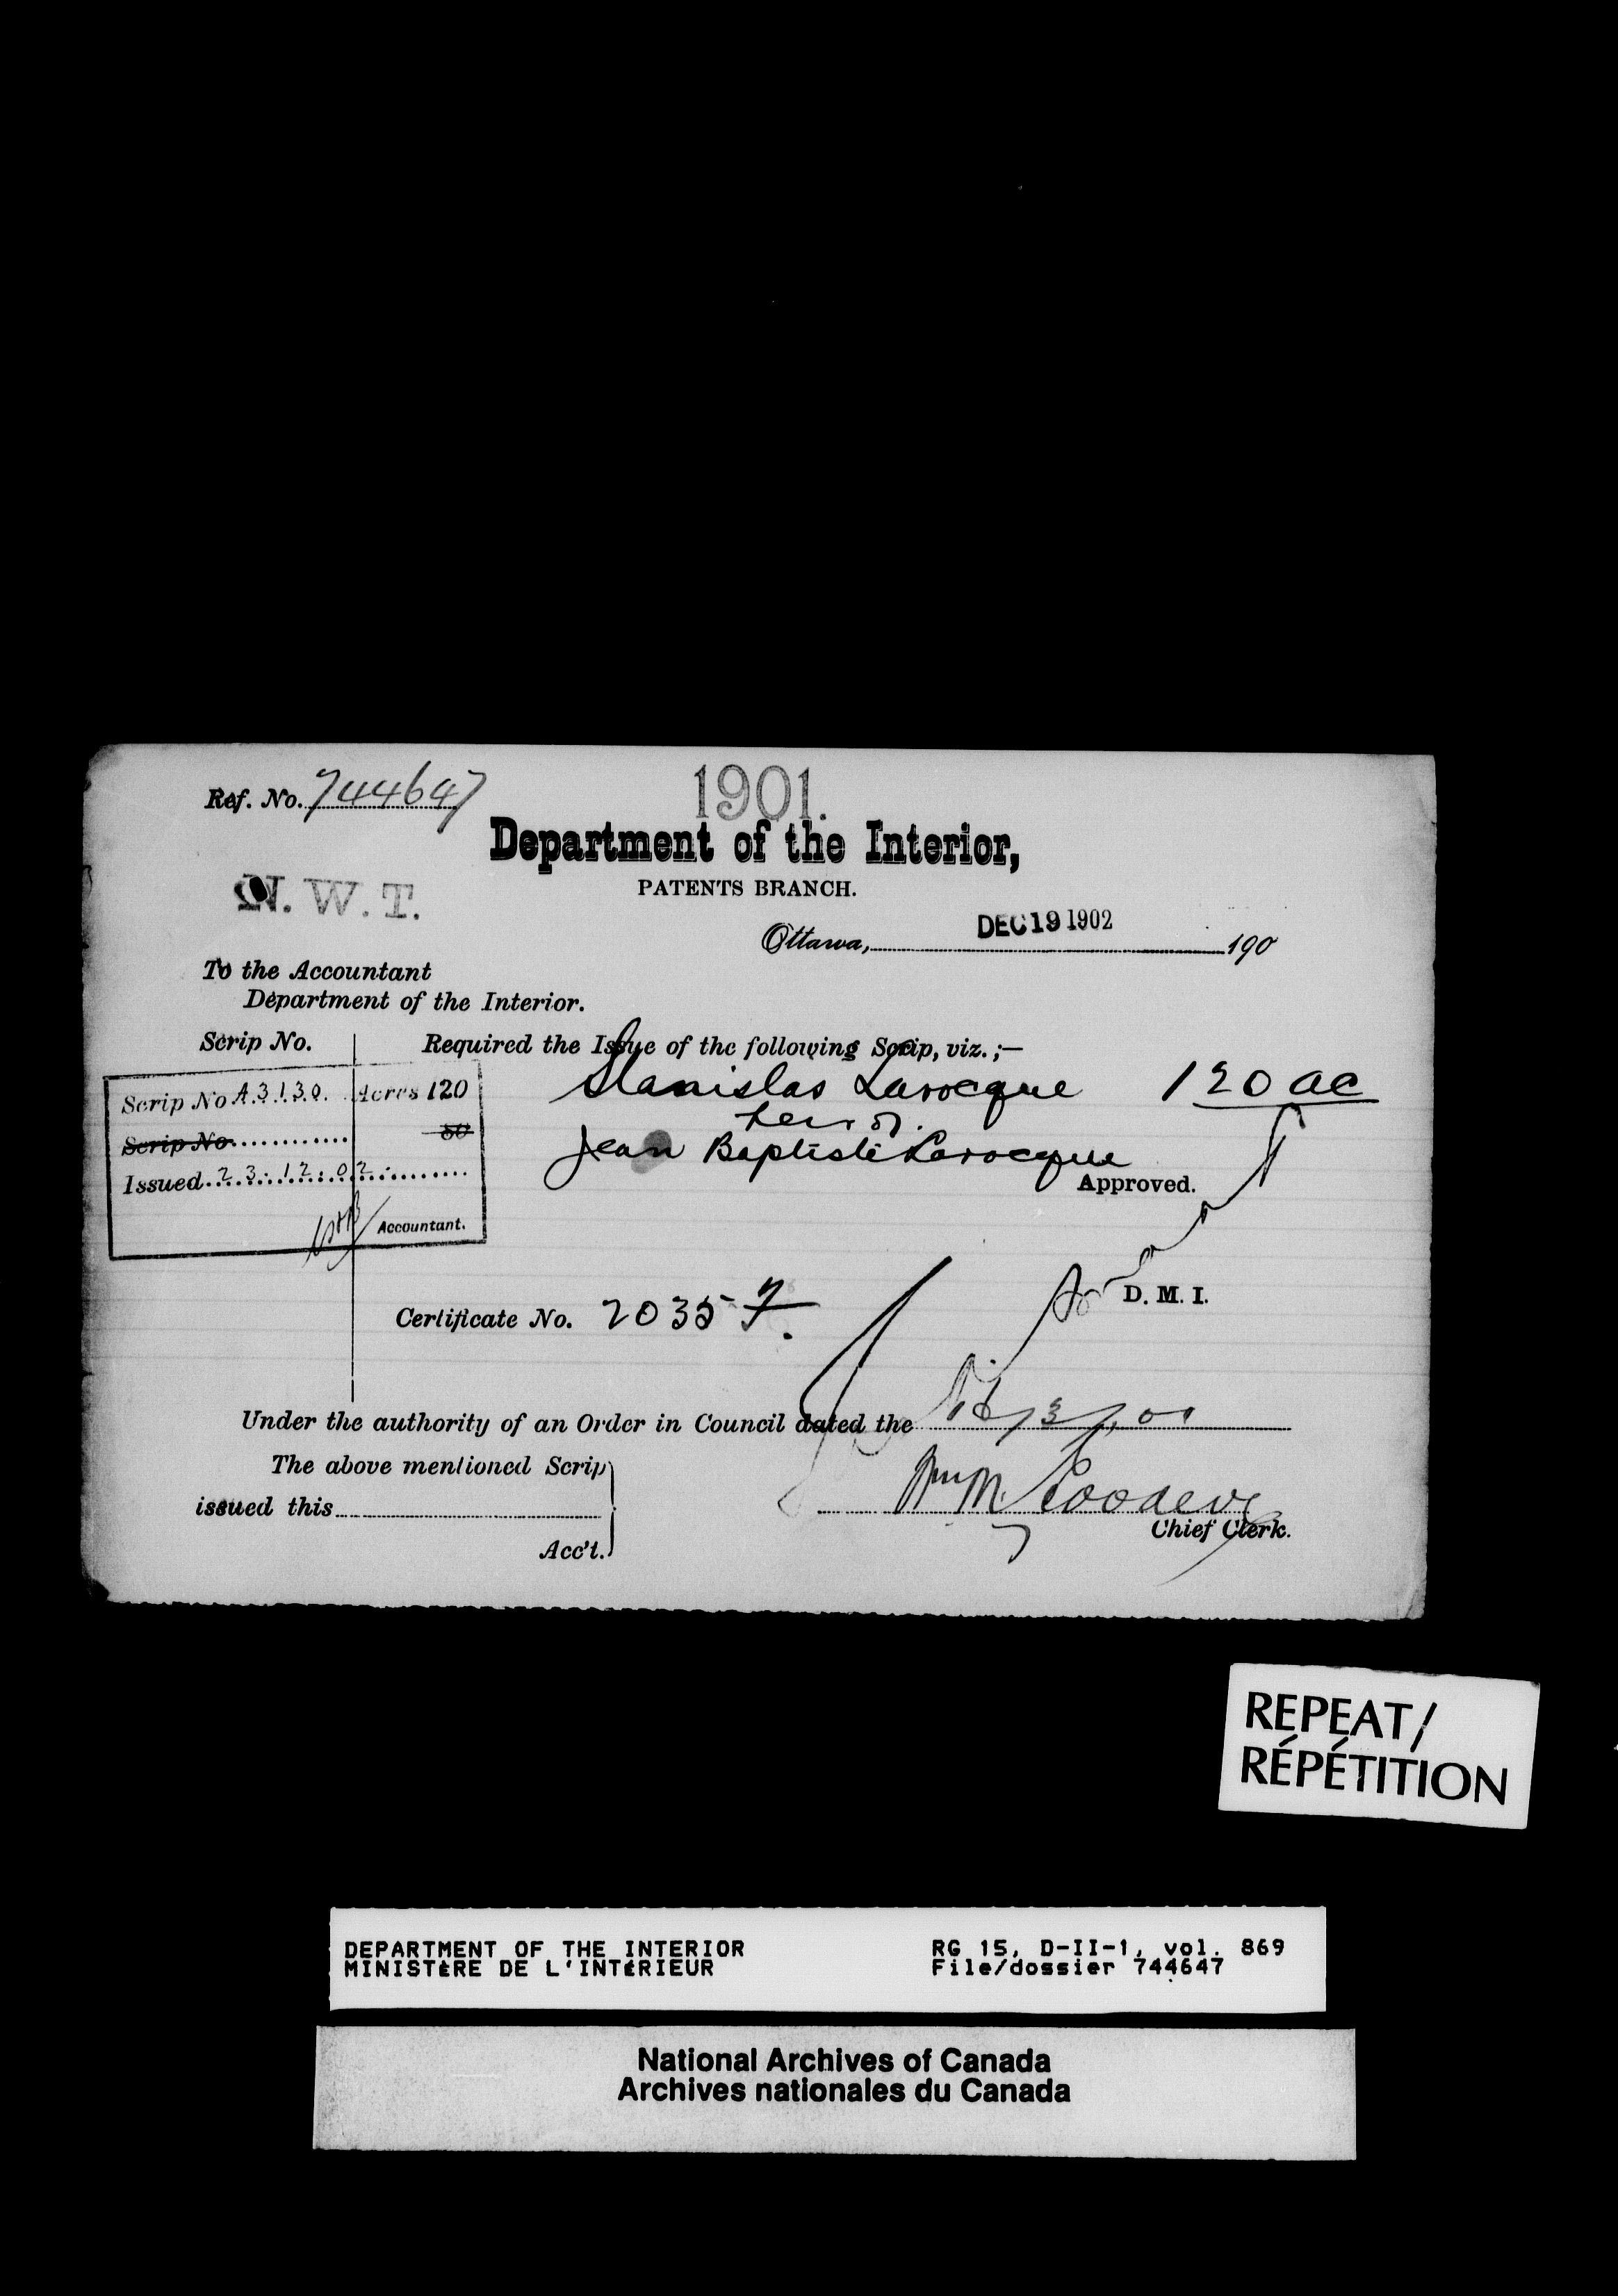 Ref. No. 744647
1901.
Department of the Interior,
PATENTS BRANCH.
N. W. T.
DEC 19 1902
Ottawa, 190
To the Accountant
Department of the Interior.
Scrip No.
Required the Issue of the following Scrip, viz.;—
Scrip No A3130. Acres 120
Stanislas Larocque 120 ac
heir of
Scrip No. 80
Jean Baptiste Larocque
Issued 23.12.02
Approved.
Accountant.
D. M. I.
Certificate No. 2035 7.
Under the authority of an Order in Council dated the
The above mentioned Scrip
issued this
Wm M. Goodeve
Chief Clerk.
Acc't.
REPEAT/
RÉPÉTITION
DEPARTMENT OF THE INTERIOR RG 15, D-II-1, vol. 869
MINISTÈRE DE L'INTÉRIEUR File/dossier 744647
National Archives of Canada
Archives nationales du Canada